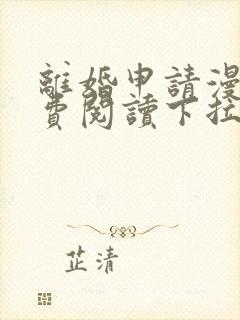 離婚申請漫
費閱讀下拉
芷清